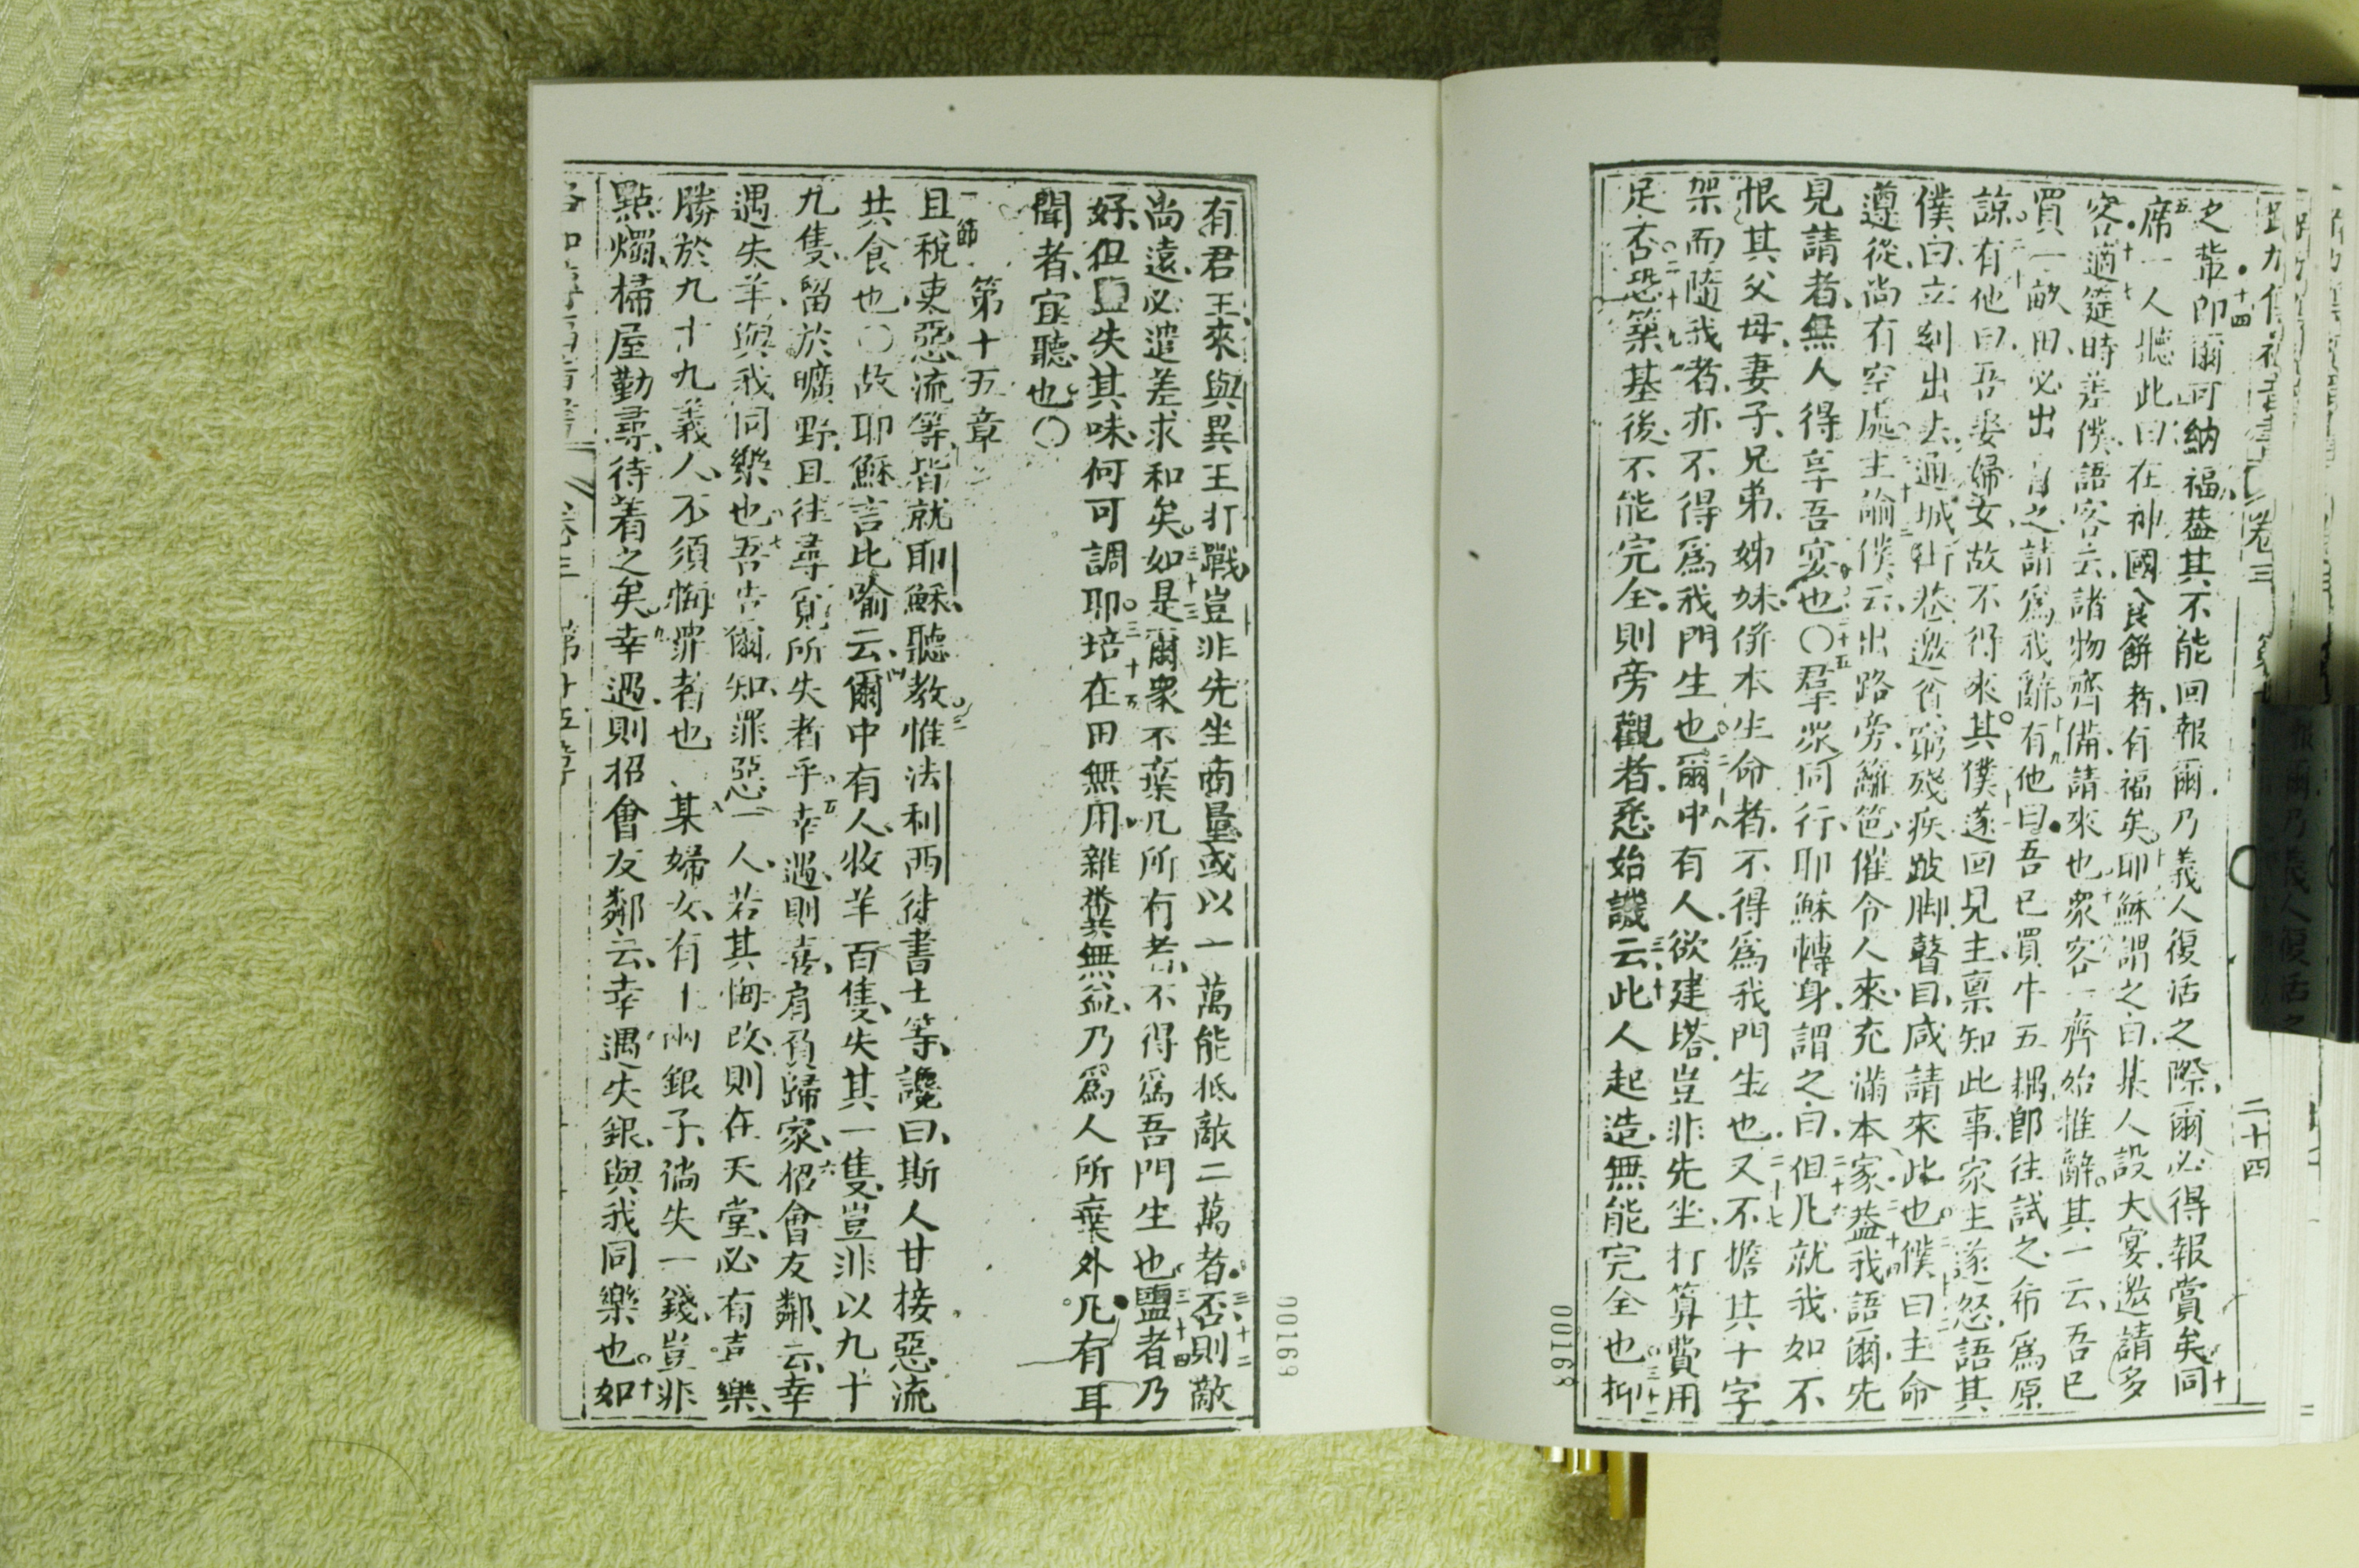 之輩即爾可納福蓋其不能回報爾乃義人復活之際爾必得報賞矣同
席一人聽此曰在神國食餅者有福矣耶穌謂之曰某人設大宴邀請多
客適筵時差僕語客云諸物齊備請來也衆客一齊始推辭其一云吾已
買一畝田必出看之請爲我辭有他曰吾已買牛五耦即往試之希爲原
諒有他曰吾娶婦女故不得來其僕遂回見主禀知此事家主遂怒語其
僕曰立刻出去通城街巷邀貧窮殘疾跛脚瞽目咸請來此也僕曰主命
遵從尚有空處主諭僕云出路旁籬笆催令人來充滿本家蓋我語爾先
見請者無人得享吾宴也〇羣衆同行耶穌轉身謂之曰但凡就我如不
恨其父母妻子兄弟姊妹併本生命者不得爲我門生也又不擔其十字
架而隨我者亦不得爲我門生也爾中有人欲建塔豈非先坐打算費用
足否恐築基後不能完全則旁觀者悉始譏云此人起造無能完全也抑
卷三
二十四
00168
有君王來與異王打戰豈非先坐商量或以一萬能抵敵二萬者否則敵
尚遠必遣差求和矣如是爾衆不棄凡所有者不得爲吾門生也鹽者乃
好但鹽失其味何可調耶培在田無用雜糞無益乃爲人所棄外凡有耳
聞者宜聽也〇
第十五章
一節
且稅吏惡流等皆就耶穌聽教惟法利西徒書士等讒曰斯人甘接惡流
共食也〇故耶穌言比喻云爾中有人收羊百隻失其一隻豈非以九十
九隻留於曠野且往尋覓所失者乎幸遇則喜肩負歸家招會友鄰云幸
遇失羊與我同樂也吾告爾知罪惡一人若其悔改則在天堂必有喜樂
勝於九十九義人不須悔罪者也某婦女有十兩銀子徜失一錢豈非
點燭掃屋勤尋待着之矣幸遇則招會友鄰云幸遇失銀與我同樂也如
卷三 第十五章
00169